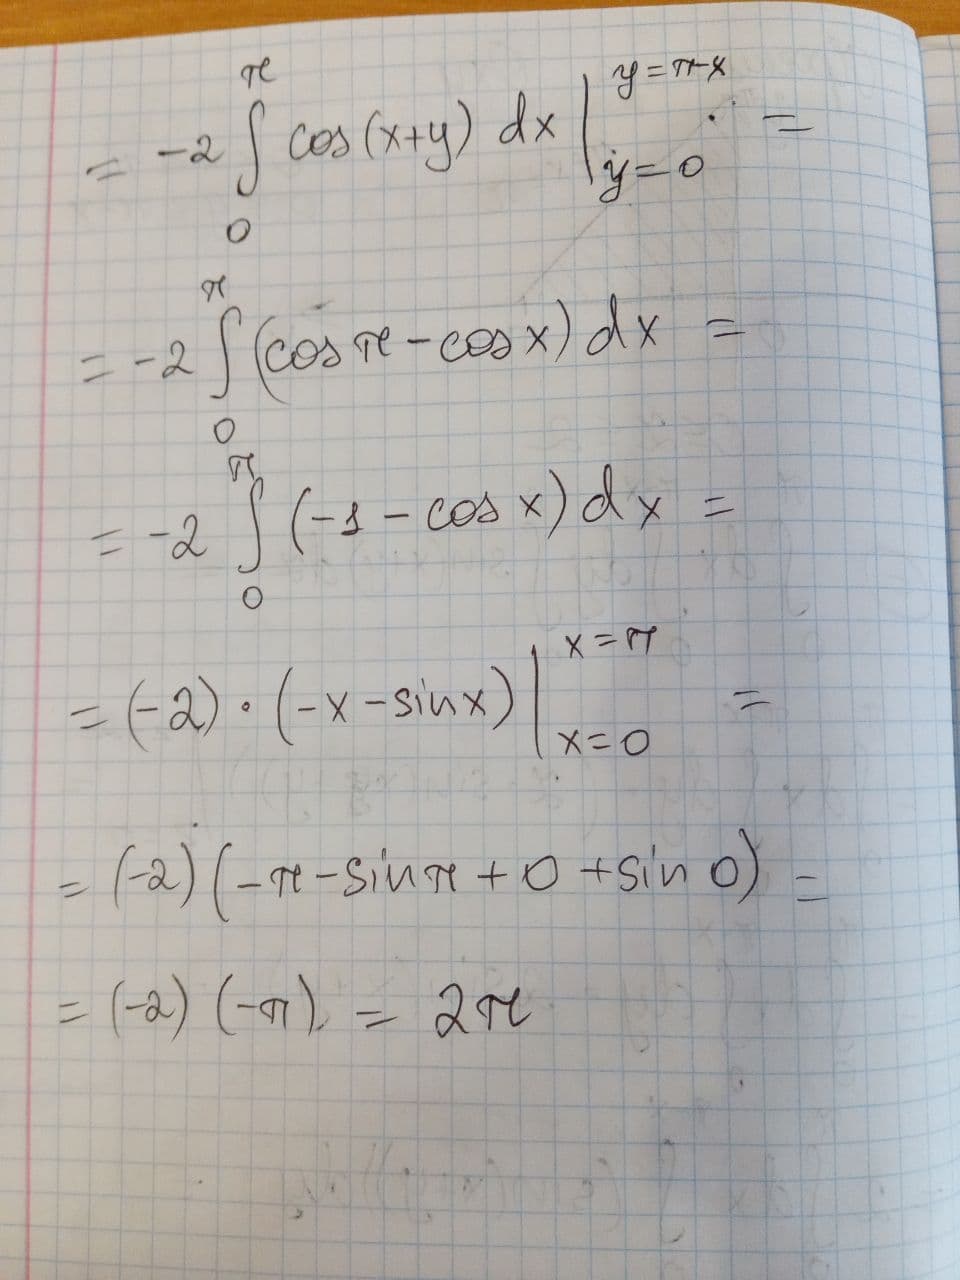 = -2 ∫₀^π cos(x+y) dx |_{y=0}^{y=π-x} =
= -2 ∫₀^π (cos π - cos x) dx =
= -2 ∫₀^π (-1 - cos x) dx =
= (-2) · (-x - sin x) |_{x=0}^{x=π} =
= (-2) (-π - sin π + 0 + sin 0) =
= (-2) (-π) = 2π